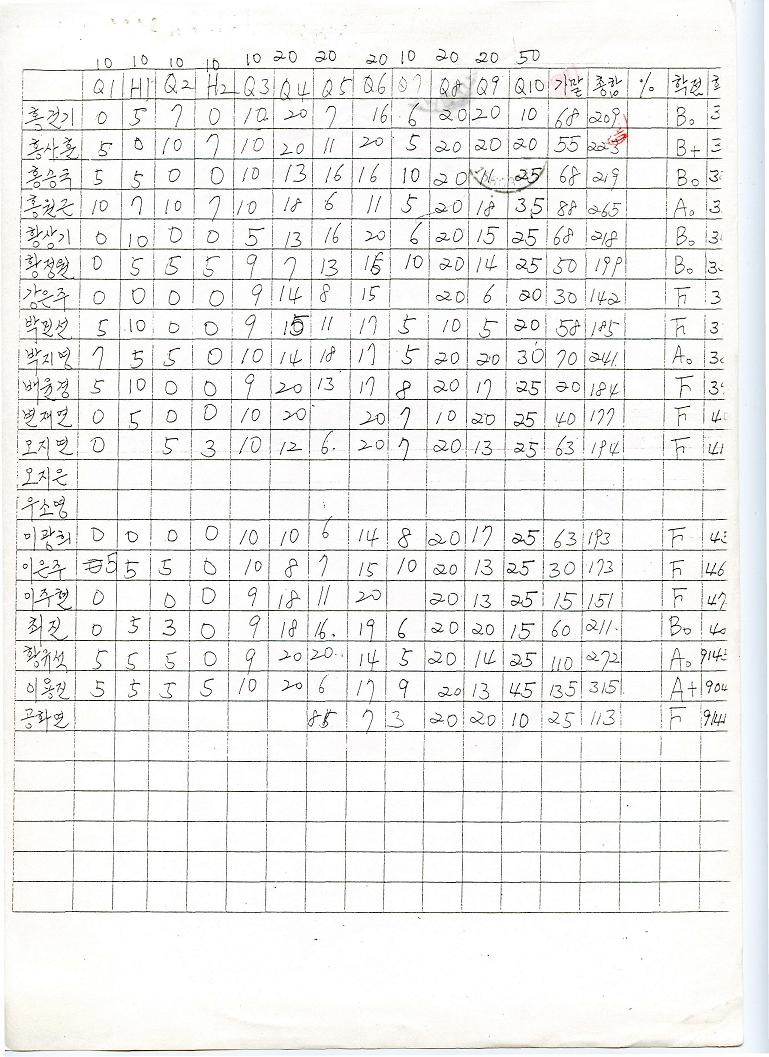 10 10 10 10 10 20 20 20 10 20 20 50
Q1 H1 Q2 H2 Q3 Q4 Q5 Q6 Q7 Q8 Q9 Q10 기말 총합 % 학점
0 5 7 0 10 20 7 16 6 20 20 10 68 209 B0 3
5 0 10 7 10 20 11 20 5 20 20 20 55 223 B+ 3
홍승국 5 5 0 0 10 13 16 16 10 20 14 25 68 219 B0 3
홍원근 10 7 10 7 10 18 6 11 5 20 18 35 88 265 A0 3
황상기 0 10 0 0 5 13 16 20 6 20 15 25 68 218 B0 3
황정원 0 5 5 5 9 7 13 16 10 20 14 25 50 199 B0 3
강은주 0 0 0 0 9 14 8 15 20 6 20 30 142 F 3
5 10 0 0 9 15 11 17 5 10 5 20 58 185 F 3
박지영 7 5 5 0 10 14 18 17 5 20 20 30 70 241 A0 3
배윤경 5 10 0 0 9 20 13 17 8 20 17 25 20 184 F 3
변재연 0 5 0 0 10 20 20 7 10 20 25 40 177 F 4
오지연 0 5 3 10 12 6. 20 7 20 13 25 63 194 F 41
오지은
우소영
이광희 0 0 0 0 10 10 6 14 8 20 17 25 63 193 F 43
이은주 5 5 5 0 10 8 7 15 10 20 13 25 30 173 F 46
이주현 0 0 0 9 18 11 20 20 13 25 15 151 F 47
최진 0 5 3 0 9 18 16. 19 6 20 20 15 60 211. B0 40
황규석 5 5 5 0 9 20 20.. 14 5 20 14 25 110 272 A0 914
이용진 5 5 5 5 10 20 6 17 9 20 13 45 135 315 A+ 904
공화연 7 3 20 20 10 25 113 F 914